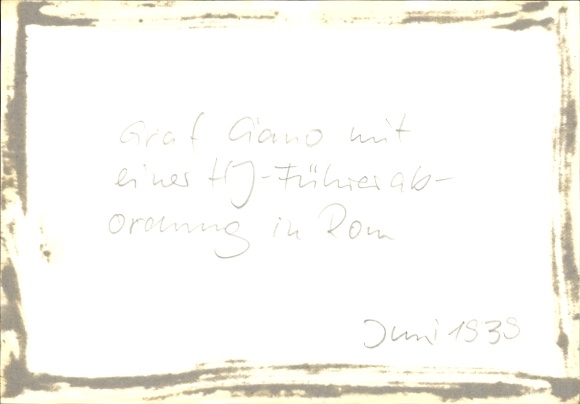 Graf Ciano mit
einer HJ-Führerab-
ordnung in Rom
Juni 1939